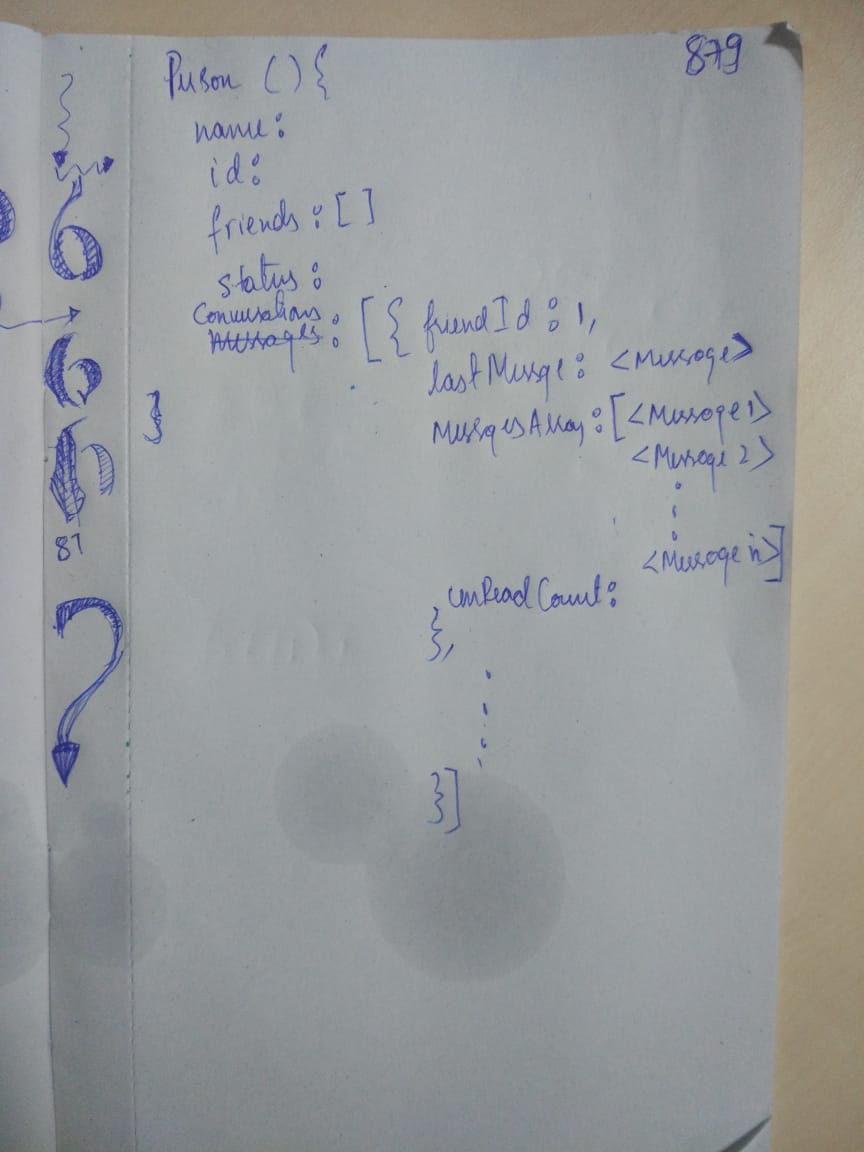 879
Person () {
name:
id:
friends: [ ]
status:
Conversations
messages: [ { friendId: 1,
lastMessge: <Message>
MessgesArray: [<Message 1>
<Message 2>
<Message n>]
unReadCount:
},
}]
}
6
6
81